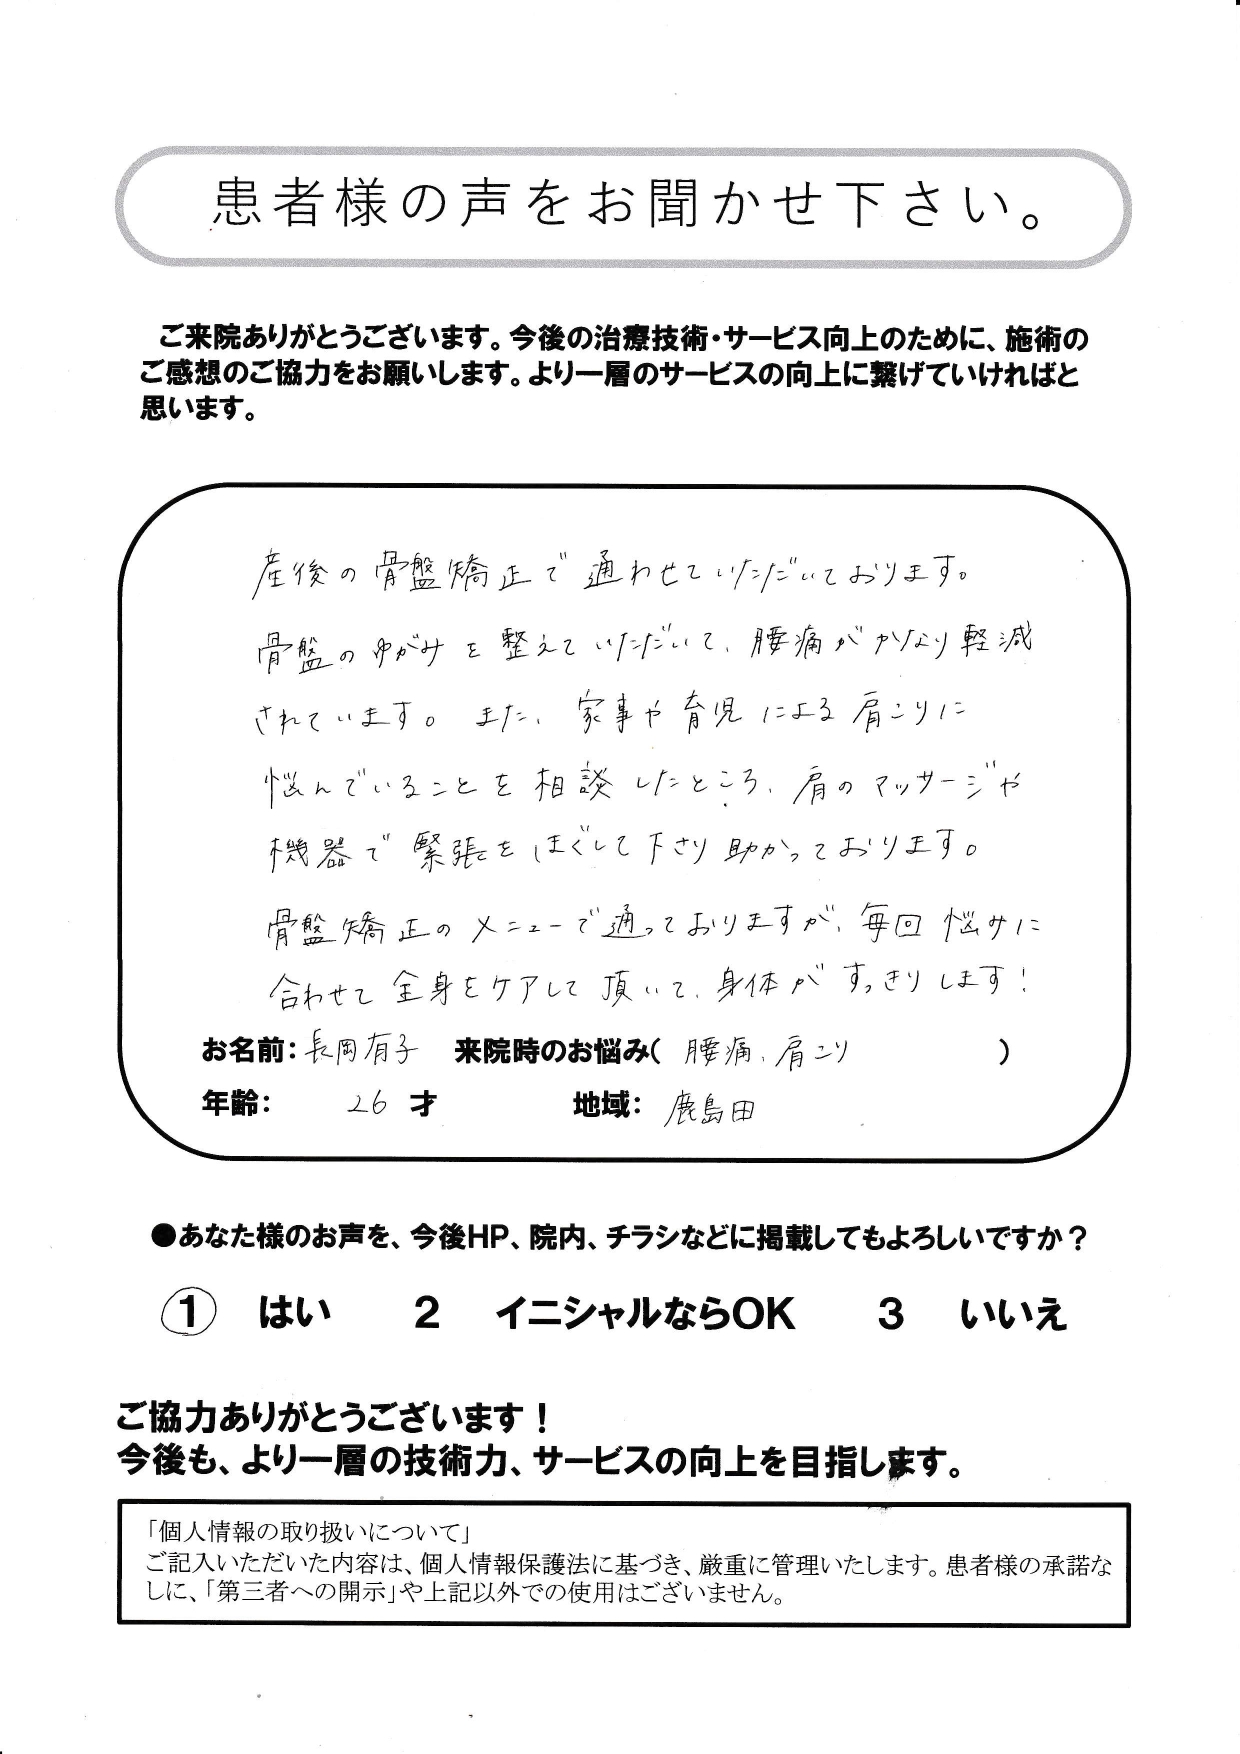 患者様の声をお聞かせ下さい。
ご来院ありがとうございます。今後の治療技術・サービス向上のために、施術の
ご感想のご協力をお願いします。より一層のサービスの向上に繋げていければと
思います。
産後の骨盤矯正で通わせていただいております。
骨盤のゆがみを整えていただいて、腰痛がかなり軽減
されています。また、家事や育児による肩こりに
悩んでいることを相談したところ、肩のマッサージや
機器で緊張をほぐして下さり助かっております。
骨盤矯正のメニューで通っておりますが、毎回悩みに
合わせて全身をケアして頂いて、身体がすっきりします!
お名前:長岡有子 来院時のお悩み( 腰痛、肩こり )
年齢: 26 才 地域: 鹿島田
●あなた様のお声を、今後HP、院内、チラシなどに掲載してもよろしいですか?
1 はい 2 イニシャルならOK 3 いいえ
ご協力ありがとうございます!
今後も、より一層の技術力、サービスの向上を目指します。
「個人情報の取り扱いについて」
ご記入いただいた内容は、個人情報保護法に基づき、厳重に管理いたします。患者様の承諾な
しに、「第三者への開示」や上記以外での使用はございません。